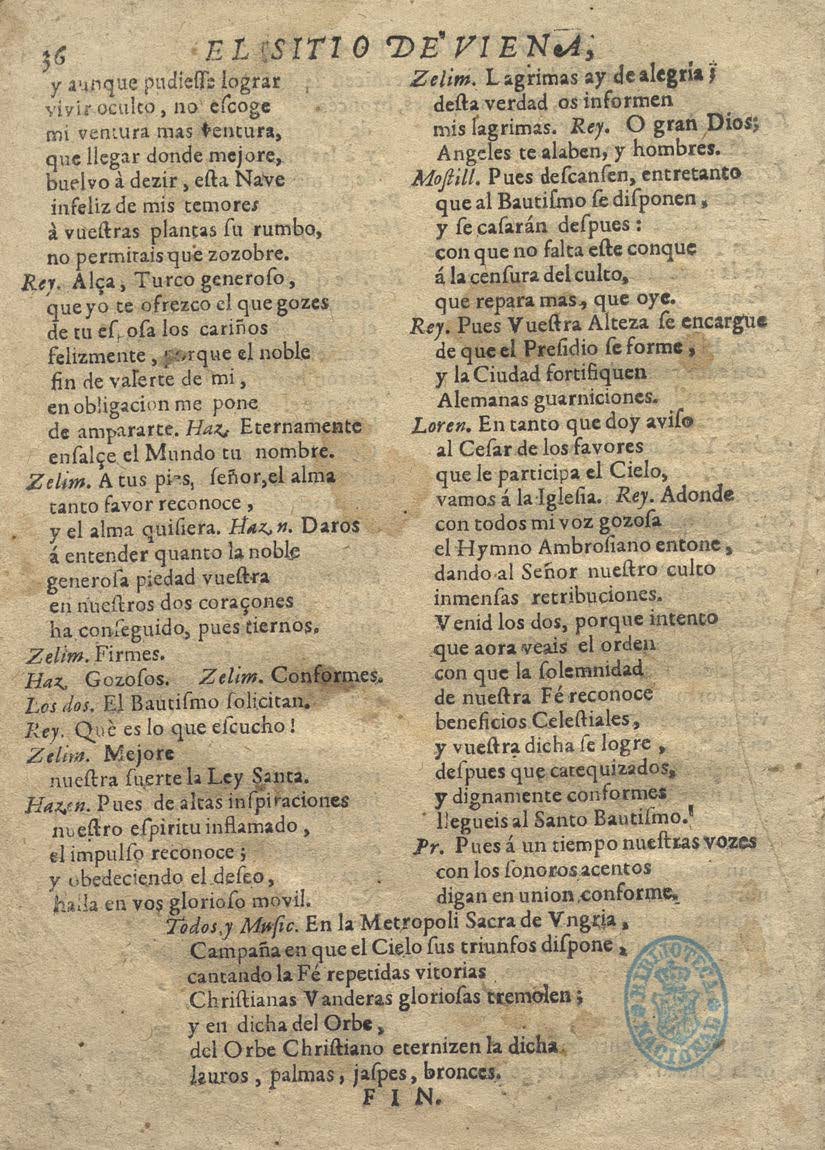 36
EL SITIO DE VIENA,
y aunque pudiesse lograr
vivir oculto, no escoge
mi ventura mas ventura,
que llegar donde mejore,
buelvo à dezir, esta Nave
infeliz de mis temores
à vuestras plantas su rumbo,
no permitais que zozobre.
Rey. Alça, Turco generoso,
que yo te ofrezco el que gozes
de tu esposa los cariños
felizmente, porque el noble
fin de valerte de mi,
en obligacion me pone
de ampararte. Haz. Eternamente
ensalçe el Mundo tu nombre.
Zelim. A tus pies, señor, el alma
tanto favor reconoce,
y el alma quisiera. Hazen. Daros
á entender quanto la noble
generosa piedad vuestra
en nuestros dos coraçones
ha conseguido, pues tiernos.
Zelim. Firmes.
Haz. Gozosos. Zelim. Conformes.
Los dos. El Bautismo solicitan.
Rey. Què es lo que escucho!
Zelim. Mejore
nuestra suerte la Ley Santa.
Hazen. Pues de altas inspiraciones
nuestro espiritu inflamado,
el impulso reconoce;
y obedeciendo el deseo,
halla en vos glorioso movil.
Zelim. Lagrimas ay de alegria;
desta verdad os informen
mis lagrimas. Rey. O gran Dios;
Angeles te alaben, y hombres.
Mostill. Pues descansen, entretanto
que al Bautismo se disponen,
y se casarán despues:
con que no falta este conque
á la censura del culto,
que repara mas, que oye.
Rey. Pues Vuestra Alteza se encargue
de que el Presidio se forme,
y la Ciudad fortifiquen
Alemanas guarniciones.
Loren. En tanto que doy aviso
al Cesar de los favores
que le participa el Cielo,
vamos á la Iglesia. Rey. Adonde
con todos mi voz gozosa
el Hymno Ambrosiano entone,
dando al Señor nuestro culto
inmensas retribuciones.
Venid los dos, porque intento
que aora veais el orden
con que la solemnidad
de nuestra Fé reconoce
beneficios Celestiales,
y vuestra dicha se logre,
despues que catequizados,
y dignamente conformes
llegueis al Santo Bautismo.
Pr. Pues á un tiempo nuestras vozes
con los sonoros acentos
digan en union conforme.
Todos, y Music. En la Metropoli Sacra de Vngria,
Campaña en que el Cielo sus triunfos dispone,
cantando la Fé repetidas vitorias
Christianas Vanderas gloriosas tremolen;
y en dicha del Orbe,
del Orbe Christiano eternizen la dicha
lauros, palmas, jaspes, bronces.
FIN.
BIBLIOTECA NACIONAL